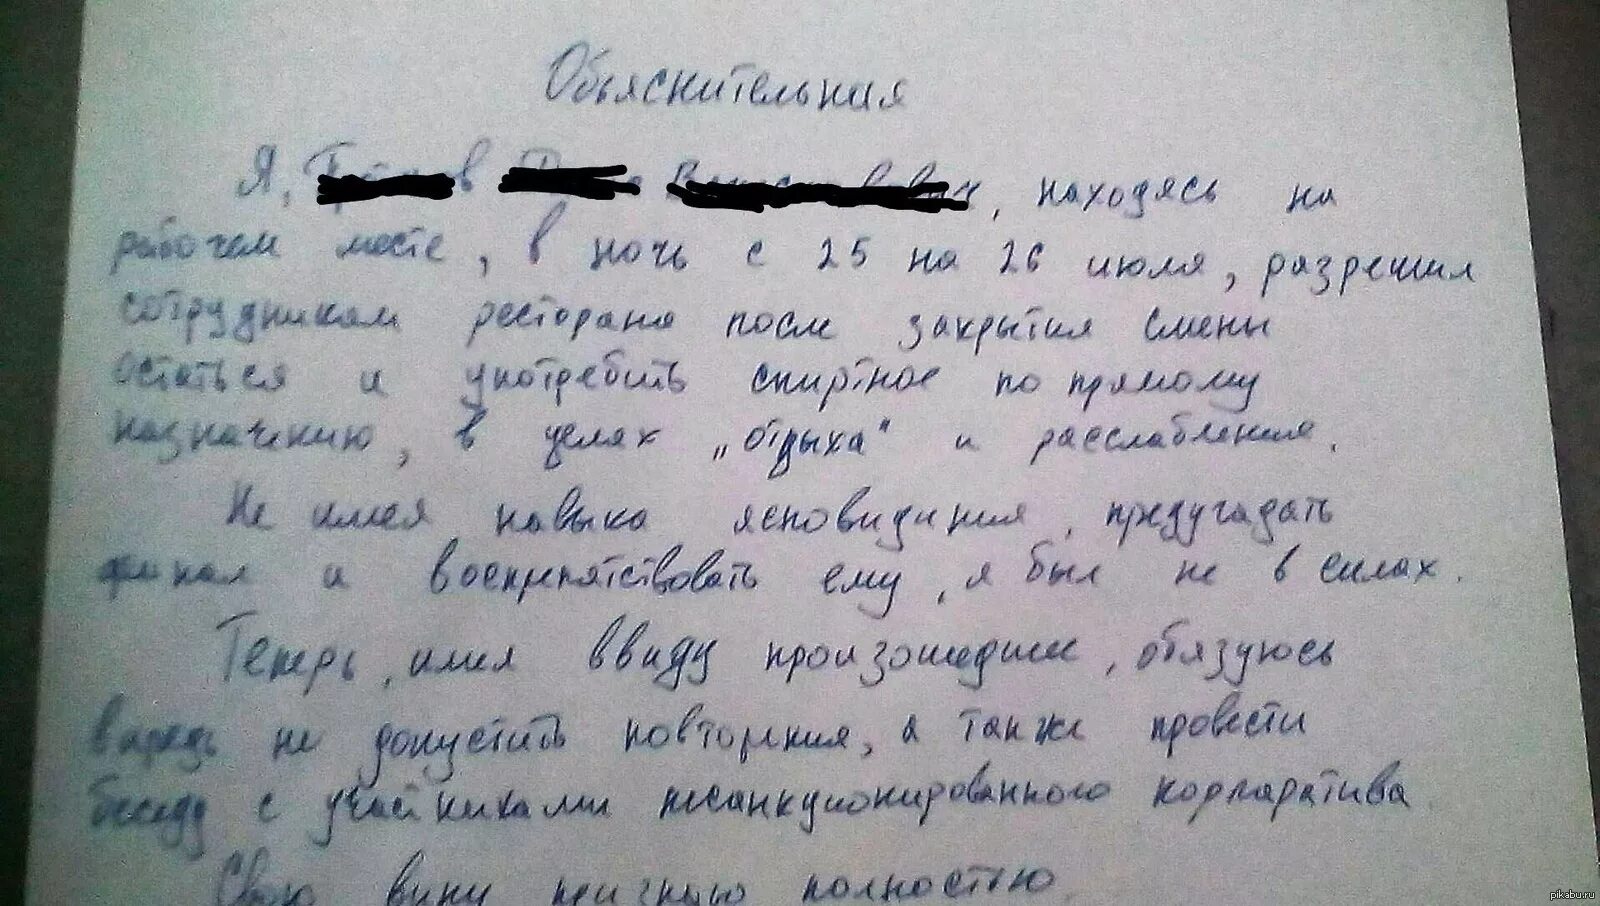 Объяснительная
Я, находясь на
рабочем месте, в ночь с 25 на 26 июля, разрешил
сотрудникам ресторана после закрытия смены
остаться и употребить спиртное по прямому
назначению, в целях „отдыха“ и расслабления.
Не имея навыка ясновидения, предугадать
финал и воспрепятствовать ему, я был не в силах.
Теперь, имея ввиду произошедшее, обязуюсь
впредь не допустить повторения, а также провести
беседу с участниками несанкционированного корпоратива.
Свою вину признаю полностью.
pikabu.ru